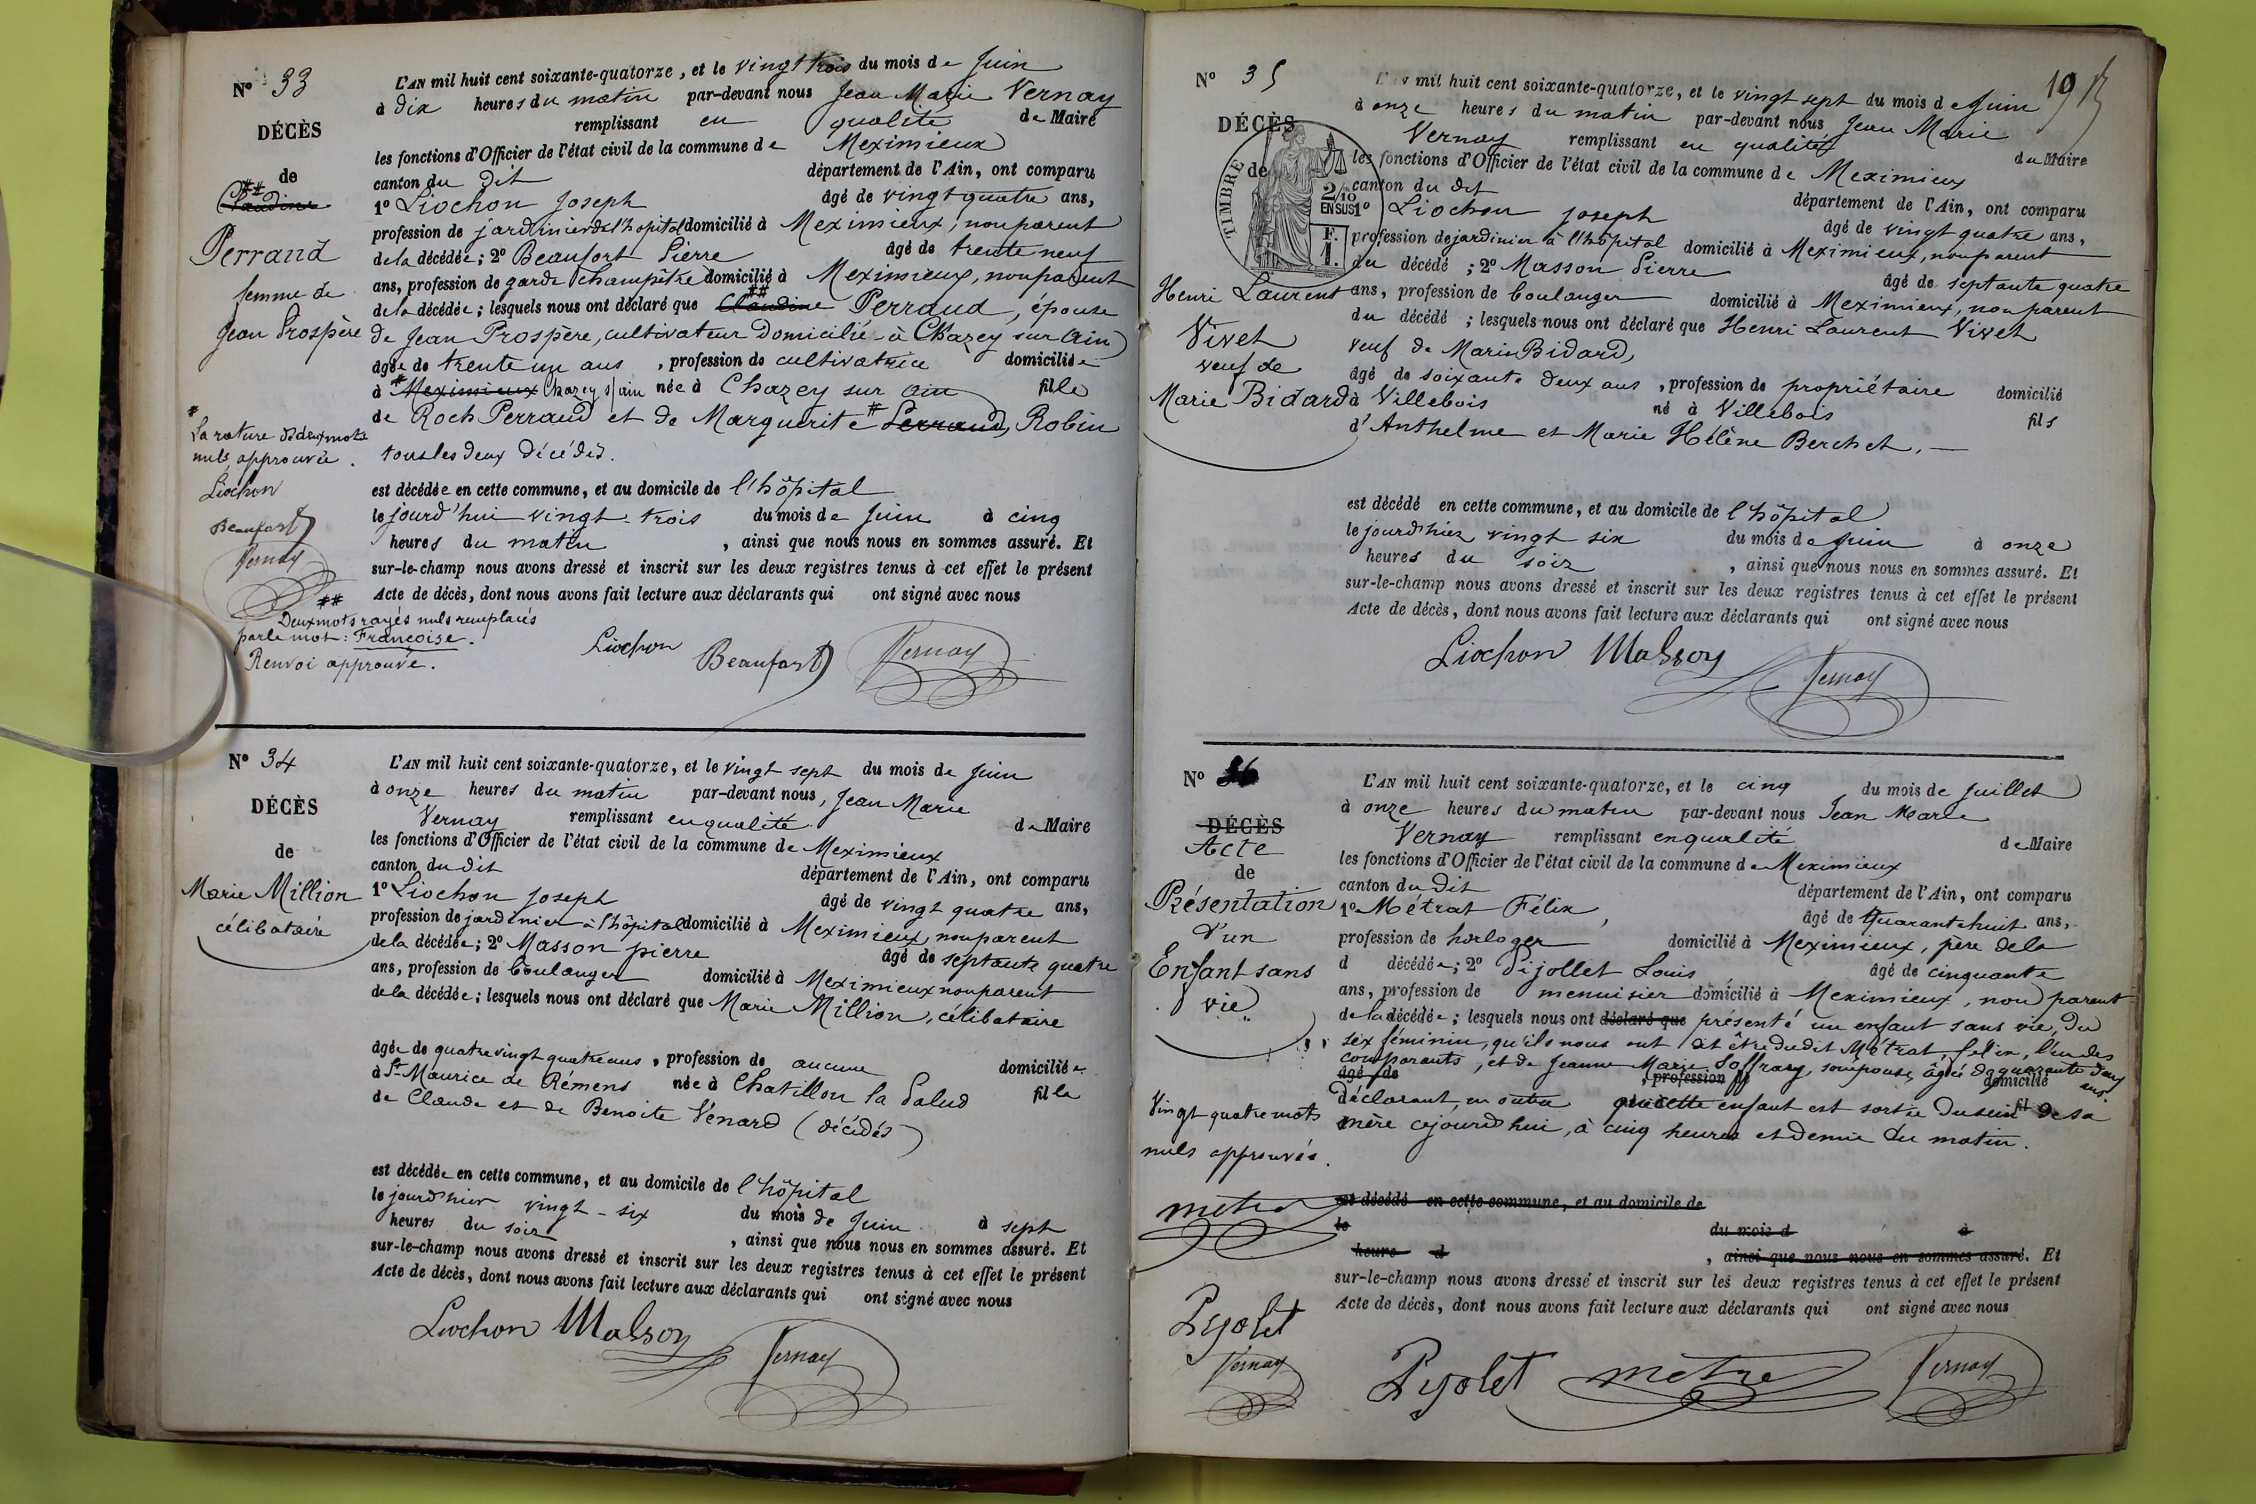 N° 33
DÉCÈS
de
##
Claudine
Perrand
femme de
Jean Prospère
#
La rature de deux mots
nuls, approuvée.
Liochon
Beaufort
Vernay
##
Deux mots rayés nuls remplacés
par le mot : Françoise.
Renvoi approuvé.
L'AN mil huit cent soixante-quatorze, et le vingt trois du mois de Juin
à dix heures du matin par-devant nous Jean Marie Vernay
remplissant en qualité de Maire
les fonctions d'Officier de l'état civil de la commune de Meximieux
canton du dit département de l'Ain, ont comparu
1° Liochon Joseph âgé de vingt quatre ans,
profession de jardinier de l'hopital domicilié à Meximieux, non parent
de la décédée; 2° Beaufort Pierre âgé de trente neuf
ans, profession de garde champêtre domicilié à Meximieux, non parent
de la décédée; lesquels nous ont déclaré que ## Claudine Perrand, épouse
de Jean Prospère, cultivateur Domicilié à Chazey sur Ain
âgée de trente un ans, profession de cultivatrice domiciliée
à # Meximieux Chazey s/ain née à Chazey sur ain fille
de Roch Perrand et de Marguerite # Perrand, Robin
tous les deux décédés.
est décédée en cette commune, et au domicile de l'hôpital
le jourd'hui vingt-trois du mois de Juin à cinq
heures du matin, ainsi que nous nous en sommes assuré. Et
sur-le-champ nous avons dressé et inscrit sur les deux registres tenus à cet effet le présent
Acte de décès, dont nous avons fait lecture aux déclarants qui ont signé avec nous
Liochon Beaufort Vernay
N° 34
DÉCÈS
de
Marie Million
célibataire
L'AN mil huit cent soixante-quatorze, et le vingt sept du mois de Juin
à onze heures du matin par-devant nous, Jean Marie
Vernay remplissant en qualité de Maire
les fonctions d'Officier de l'état civil de la commune de Meximieux
canton du dit département de l'Ain, ont comparu
1° Liochon Joseph âgé de vingt quatre ans,
profession de jardinier à l'hôpital domicilié à Meximieux, non parent
de la décédée; 2° Masson pierre âgé de septante quatre
ans, profession de boulanger domicilié à Meximieux non parent
de la décédée; lesquels nous ont déclaré que Marie Million, célibataire
âgée de quatre vingt quatre ans, profession de aucune domiciliée
à St Maurice de Rémens née à Chatillon la Palud fille
de Claude et de Benoite Vénard (décédés)
est décédée en cette commune, et au domicile de l'hôpital
le jourd'hier vingt-six du mois de Juin à sept
heures du soir, ainsi que nous nous en sommes assuré. Et
sur-le-champ nous avons dressé et inscrit sur les deux registres tenus à cet effet le présent
Acte de décès, dont nous avons fait lecture aux déclarants qui ont signé avec nous
Liochon Masson Vernay
19
N° 35
DÉCÈS
de
TIMBRE
2/10
EN SUS
F.
1.
Henri Laurent
Vivet
veuf de
Marie Bidard
L'AN mil huit cent soixante-quatorze, et le vingt sept du mois de Juin
à onze heures du matin par-devant nous Jean Marie
Vernay remplissant en qualité de Maire
les fonctions d'Officier de l'état civil de la commune de Meximieux
canton du dit département de l'Ain, ont comparu
1° Liochon Joseph âgé de vingt quatre ans,
profession de jardinier à l'hôpital domicilié à Meximieux, non parent
du décédé; 2° Masson Pierre âgé de septante quatre
ans, profession de boulanger domicilié à Meximieux, non parent
du décédé; lesquels nous ont déclaré que Henri Laurent Vivet
veuf de Marie Bidard,
âgé de soixante deux ans, profession de propriétaire domicilié
à Villebois né à Villebois fils
d'Anthelme et Marie Hélène Berchet.
est décédé en cette commune, et au domicile de l'hôpital
le jourd'hier vingt six du mois de Juin à onze
heures du soir, ainsi que nous nous en sommes assuré. Et
sur-le-champ nous avons dressé et inscrit sur les deux registres tenus à cet effet le présent
Acte de décès, dont nous avons fait lecture aux déclarants qui ont signé avec nous
Liochon Masson Vernay
N° 36
DÉCÈS
Acte
de
Présentation
d'un
Enfant sans
vie
Vingt quatre mots
nuls approuvés.
métra
Pijolet
Vernay
L'AN mil huit cent soixante-quatorze, et le cinq du mois de Juillet
à onze heures du matin par-devant nous Jean Marie
Vernay remplissant en qualité de Maire
les fonctions d'Officier de l'état civil de la commune de Meximieux
canton du dit département de l'Ain, ont comparu
1° Métrat Félix, âgé de quarante huit ans,
profession de horloger domicilié à Meximieux, père de la
d décédée; 2° Pijollet Louis âgé de cinquante
ans, profession de menuisier domicilié à Meximieux, non parent
de la décédée; lesquels nous ont déclaré que présenté un enfant sans vie, du
sex féminin, qu'ils nous ont dit être du dit Métrat, Félix, l'un des
comparants, et de Jeanne Marie Soffray, son épouse, âgée de quarante deux ans
âgé de, profession domicilié
Déclarant en outre que cette enfant est sortie du sein fil de sa
mère cejourd'hui, à cinq heures et demie du matin.
est décédé en cette commune, et au domicile de
le du mois d à
heure d, ainsi que nous nous en sommes assuré. Et
sur-le-champ nous avons dressé et inscrit sur les deux registres tenus à cet effet le présent
Acte de décès, dont nous avons fait lecture aux déclarants qui ont signé avec nous
Pijolet métra Vernay